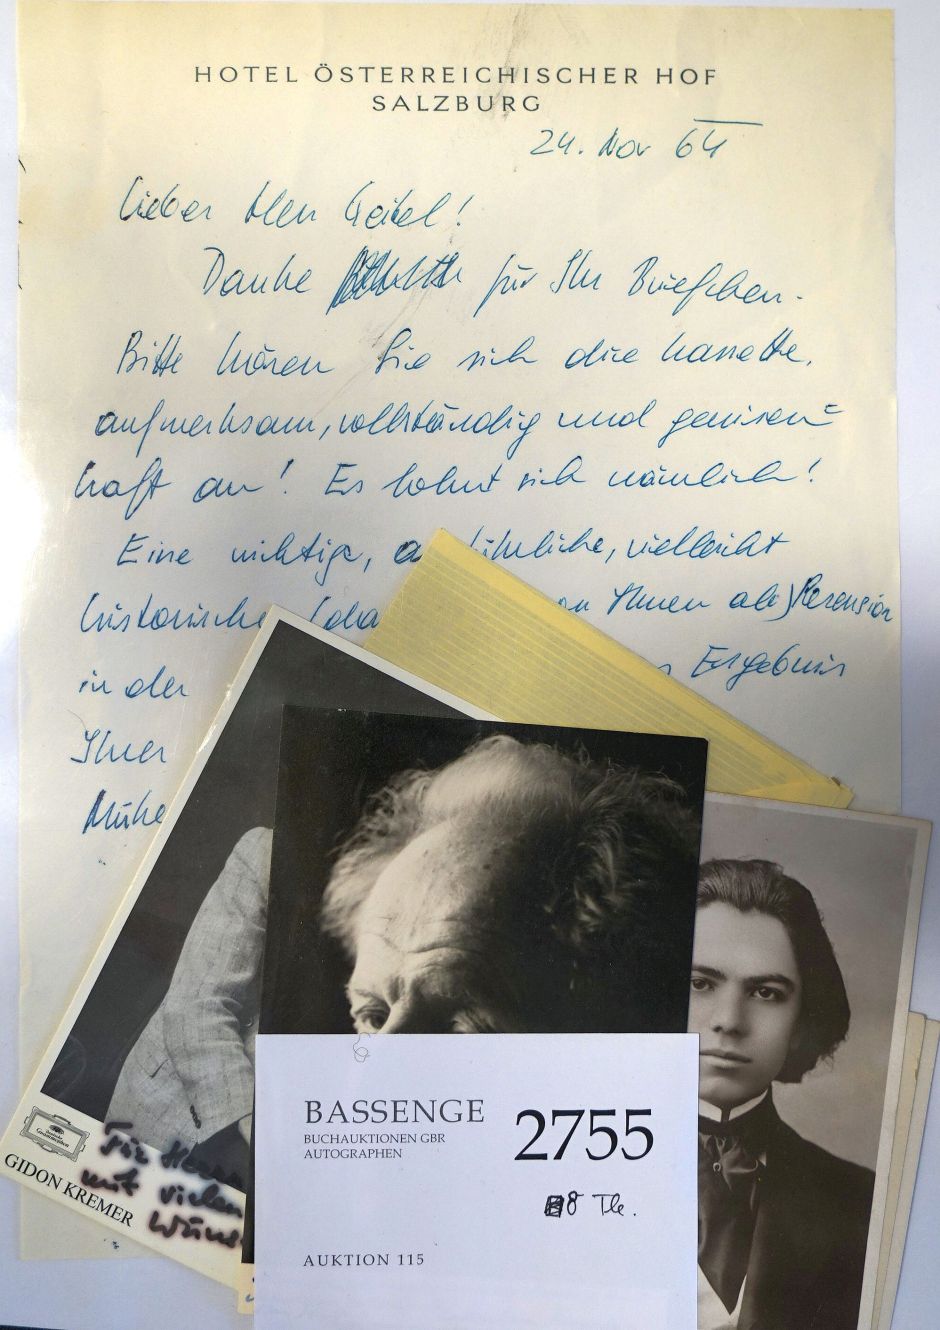 HOTEL ÖSTERREICHISCHER HOF
SALZBURG
24. Nov 64
Lieber Herr Geitel!
Danke für Ihr Briefchen.
Bitte hören Sie sich die Kassette
aufmerksam, vollständig und genissen=
haft an! Es lohnt sich nämlich!
Eine wichtige, vielleicht
historische von Ihnen als Rezension
in der Ergebnis
Ihrer
Mühe
Deutsche
Grammophon
GIDON KREMER
Für Herrn
mit vielen
BASSENGE
BUCHAUKTIONEN GBR
AUTOGRAPHEN
2755
8 Tle.
AUKTION 115